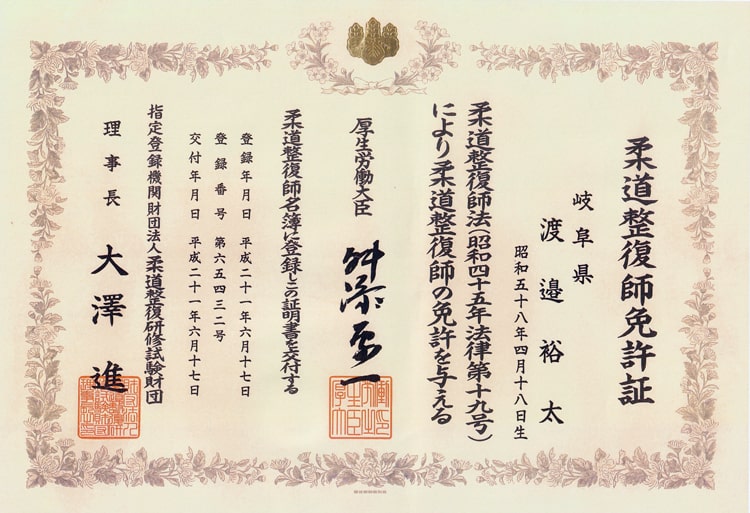 柔道整復師免許証
岐阜県
渡邉裕太
昭和五十八年四月十八日生
柔道整復師法(昭和四十五年法律第十九号)
により柔道整復師の免許を与える
厚生労働大臣
舛添要一
柔道整復師名簿に登録しこの証明書を交付する
登録年月日 平成二十一年六月十七日
登録番号 第六五四三二号
交付年月日 平成二十一年六月十七日
指定登録機関財団法人柔道整復研修試験財団
理事長 大澤進